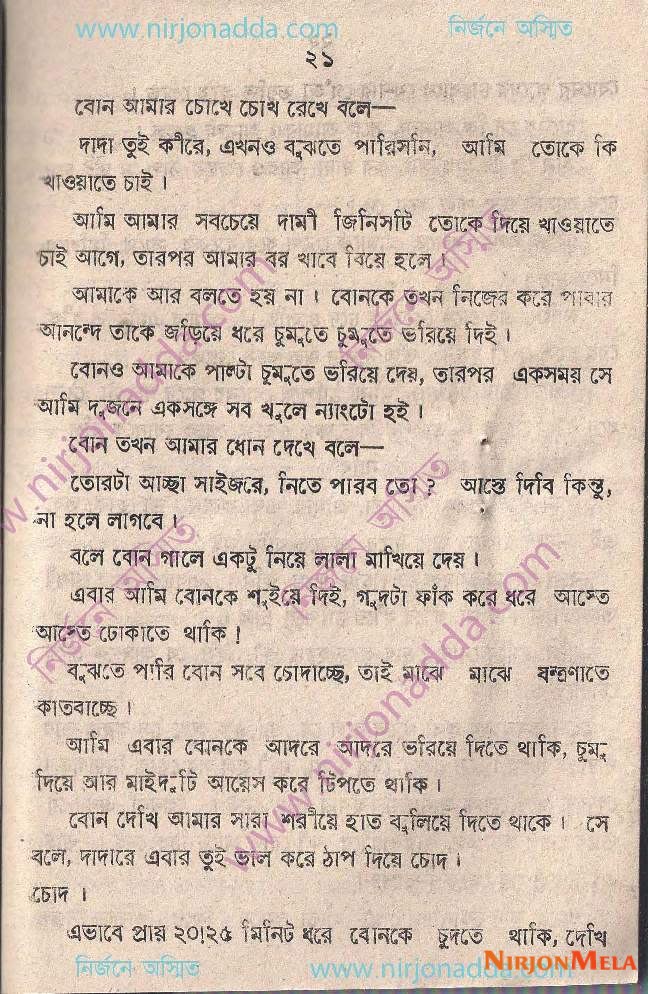 www.nirjonadda.com নির্জনে অস্মিত
২১
বোন আমার চোখে চোখ রেখে বলে—
দাদা তুই কীরে, এখনও বুঝতে পারিসনি, আমি তোকে কি
খাওয়াতে চাই।
আমি আমার সবচেয়ে দামী জিনিসটি তোকে দিয়ে খাওয়াতে
চাই আগে, তারপর আমার বর খাবে বিয়ে হলে।
আমাকে আর বলতে হয় না। বোনকে তখন নিজের করে পাবার
আনন্দে তাকে জড়িয়ে ধরে চুমুতে চুমুতে ভরিয়ে দিই।
বোনও আমাকে পাল্টা চুমুতে ভরিয়ে দেয়, তারপর একসময় সে
আমি দুজনে একসঙ্গে সব খুলে ন্যাংটো হই।
বোন তখন আমার ধোন দেখে বলে—
তোরটা আচ্ছা সাইজরে, নিতে পারব তো? আস্তে দিবি কিন্তু,
না হলে লাগবে।
বলে বোন গালে একটু নিয়ে লালা মাখিয়ে দেয়।
এবার আমি বোনকে শুইয়ে দিই, গুদটা ফাঁক করে ধরে আস্তে
আস্তে ঢোকাতে থাকি!
বুঝতে পারি বোন সবে চোদাচ্ছে, তাই মাঝে মাঝে যন্ত্রণাতে
কাতবাচ্ছে।
আমি এবার বোনকে আদরে আদরে ভরিয়ে দিতে থাকি, চুমু
দিয়ে আর মাইদুটি আয়েস করে টিপতে থাকি।
বোন দেখি আমার সারা শরীয়ে হাত বুলিয়ে দিতে থাকে। সে
বলে, দাদারে এবার তুই ভাল করে ঠাপ দিয়ে চোদ।
চোদ।
এভাবে প্রায় ২০!২৫ মিনিট ধরে বোনকে চুদতে থাকি, দেখি
নির্জনে অস্মিত www.nirjonadda.com
NIRJONMELA
www.nirjonadda.com নির্জনে অস্মিত
নির্জনে অস্মিত www.nirjonadda.com